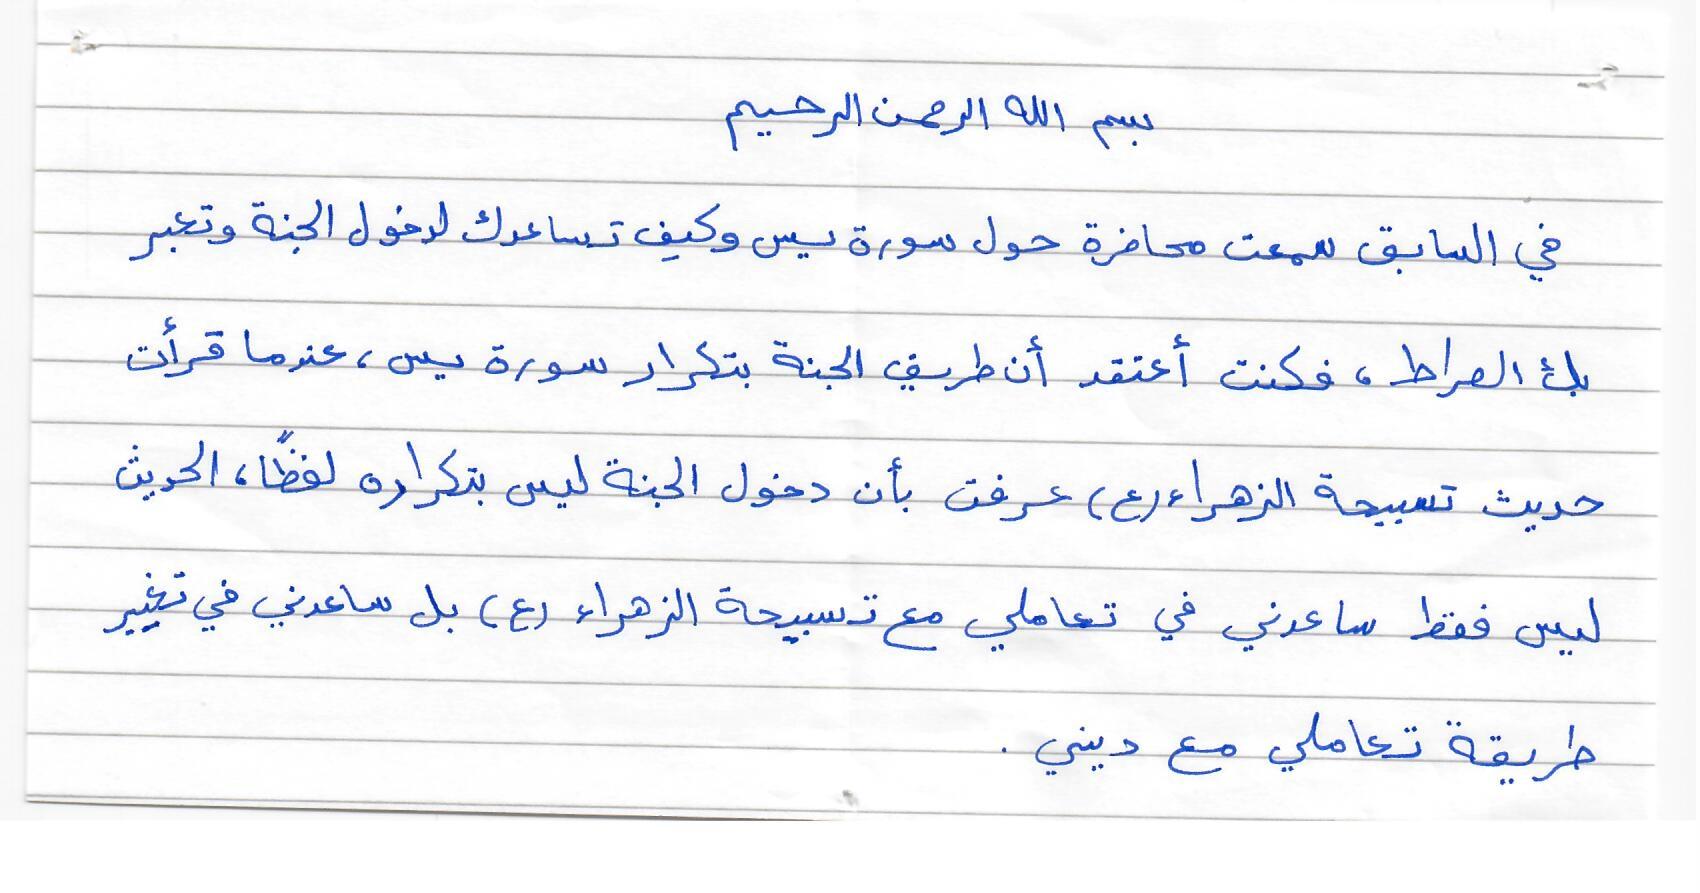 بسم الله الرحمن الرحيم
في السابق سمعت محاضرة حول سورة يس وكيف تساعدك لدخول الجنة وتعبر
بك الصراط ، فكنت أعتقد أن طريق الجنة بتكرار سورة يس ، عندما قرأت
حديث تسبيحة الزهراء (ع) عرفت بأن دخول الجنة ليس بتكراره لفظًا ، الحديث
ليس فقط ساعدني في تعاملي مع تسبيحة الزهراء (ع) بل ساعدني في تغيير
طريقة تعاملي مع ديني .